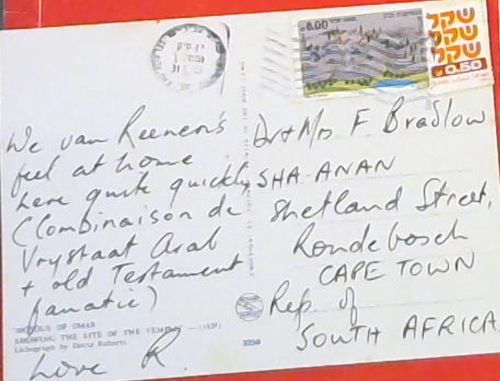 6.00
שקל
שקל
שקל
0.50
We van Reenen's
feel at home
here quite quickly
(Combinaison de
Vrystaat Arab
+ old Testament
fanatic)
Love R.
MOSQUE OF OMAR
SHOWING THE SITE OF THE TEMPLE — (1839)
Lithograph by David Roberts
3250
Dr & Mrs F. Bradlow
SHA-ANAN
Shetland Street,
Rondebosch
CAPE TOWN
Rep. of
SOUTH AFRICA